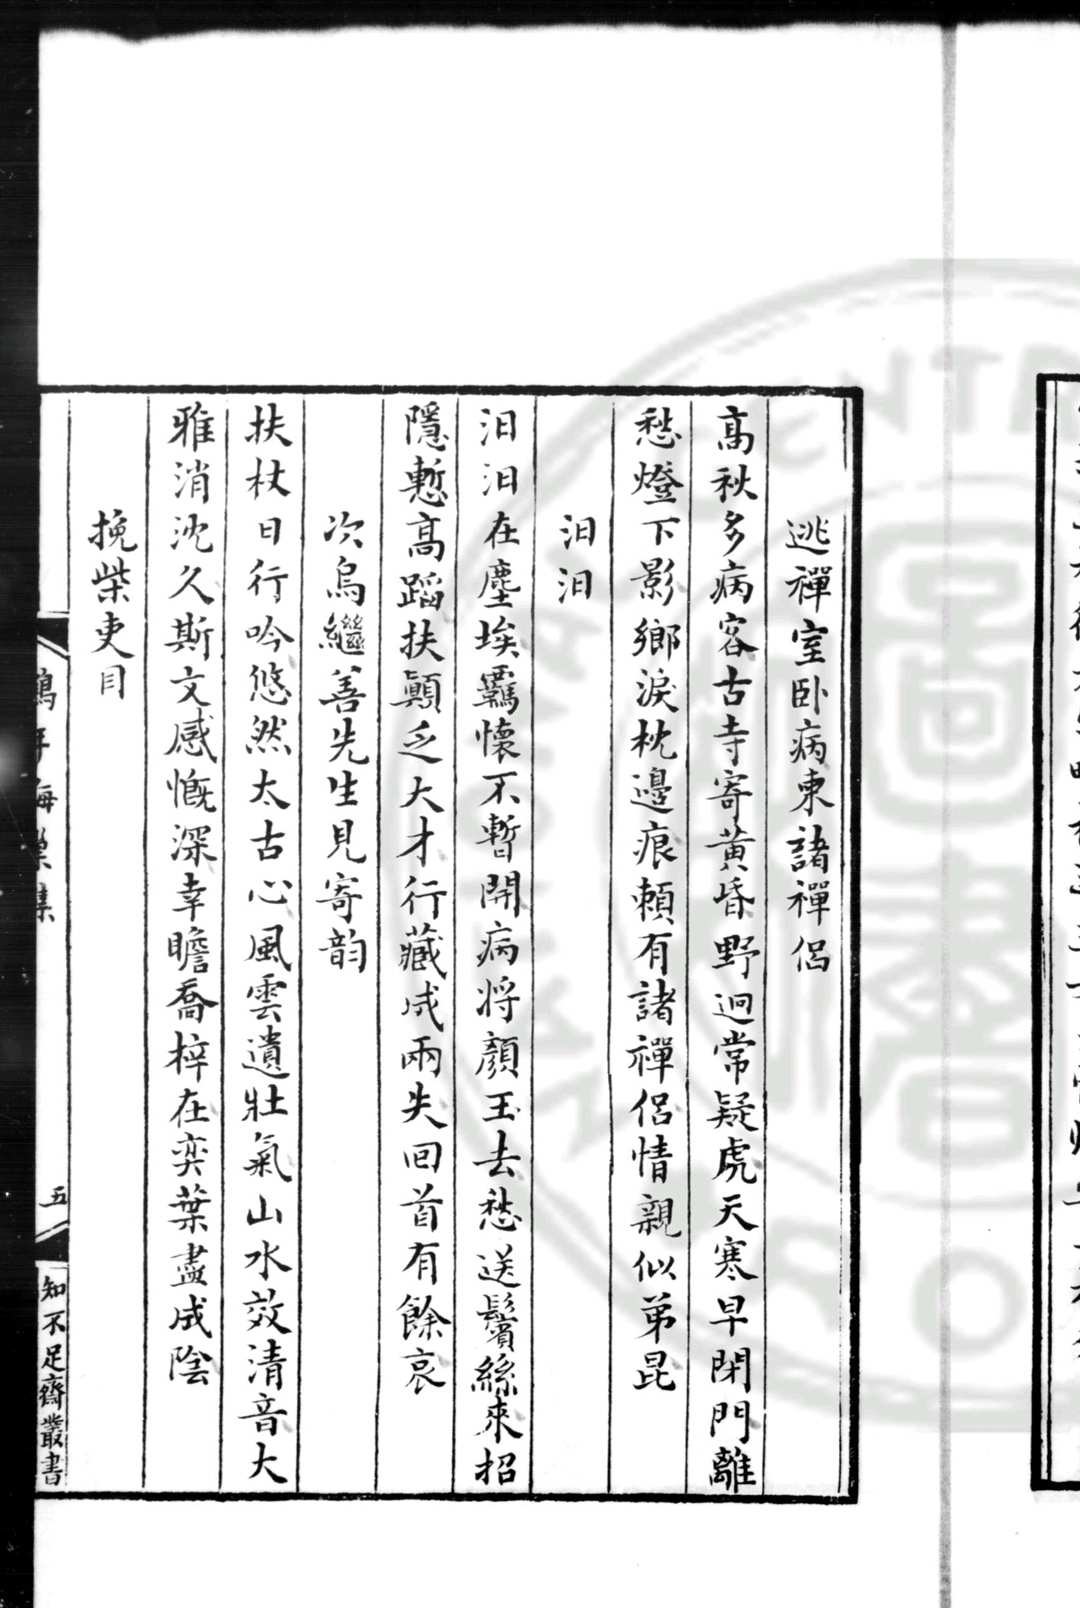 逃禪室卧病柬諸禪侶
高秋多病容古寺寄黃昏野迥常疑虎天寒早閉門離
愁燈下影鄉淚枕邊痕賴有諸禪侶情親似弟昆
汨汨
汨汨在塵埃羈懷不暫開病將顏玉去愁送鬢絲來招
隱慙高蹈扶顛乏大才行藏成兩失回首有餘哀
次烏繼善先生見寄韵
扶杖日行吟悠然太古心風雲遺壯氣山水效清音大
雅消沈久斯文感慨深幸瞻喬梓在奕葉盡成陰
挽柴吏目
五
知不足齋叢書